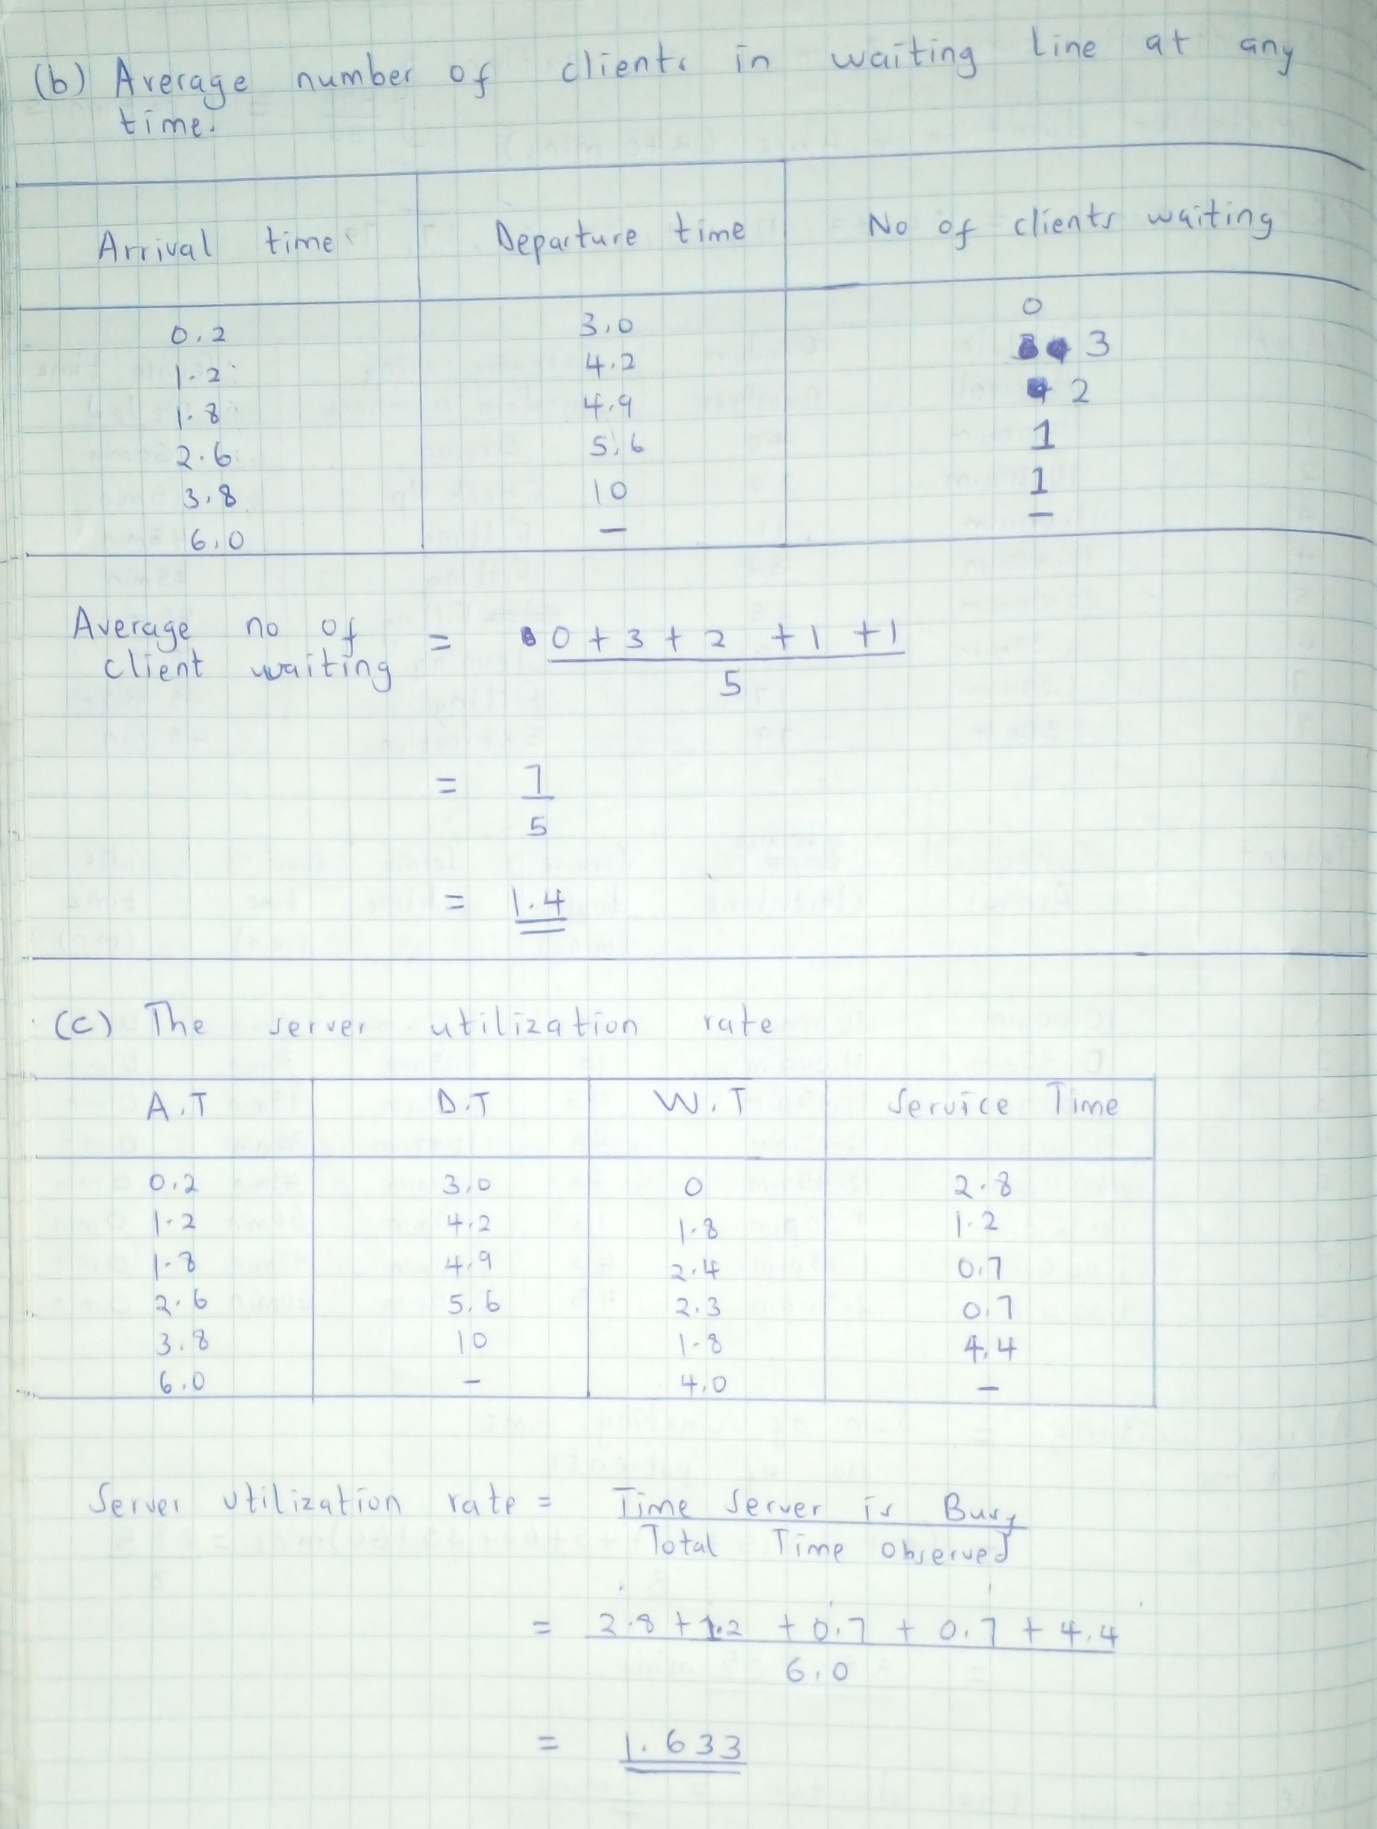 (b) Average number of clients in waiting line at any
time.
Arrival time Departure time No of clients waiting
0.2 3.0 0
1.2 4.2 3
1.8 4.9 2
2.6 5.6 1
3.8 10 1
6.0 – –
Average no of = 0 + 3 + 2 + 1 + 1
client waiting 5
= 7
5
= 1.4
(c) The server utilization rate
A.T D.T W.T Service Time
0.2 3.0 0 2.8
1.2 4.2 1.8 1.2
1.8 4.9 2.4 0.7
2.6 5.6 2.3 0.7
3.8 10 1.8 4.4
6.0 – 4.0 –
Server utilization rate = Time Server is Busy
Total Time observed
= 2.8 + 1.2 + 0.7 + 0.7 + 4.4
6.0
= 1.633